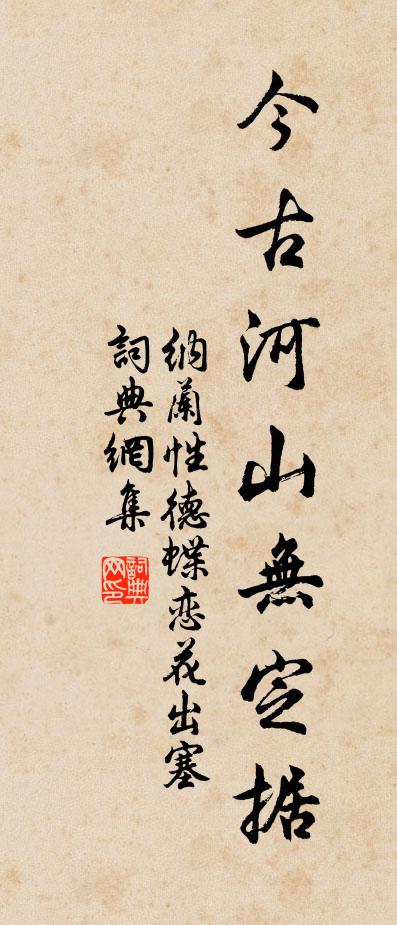 今古河山無定据
納蘭性德蝶恋花出塞
詞典網集
詞典网印